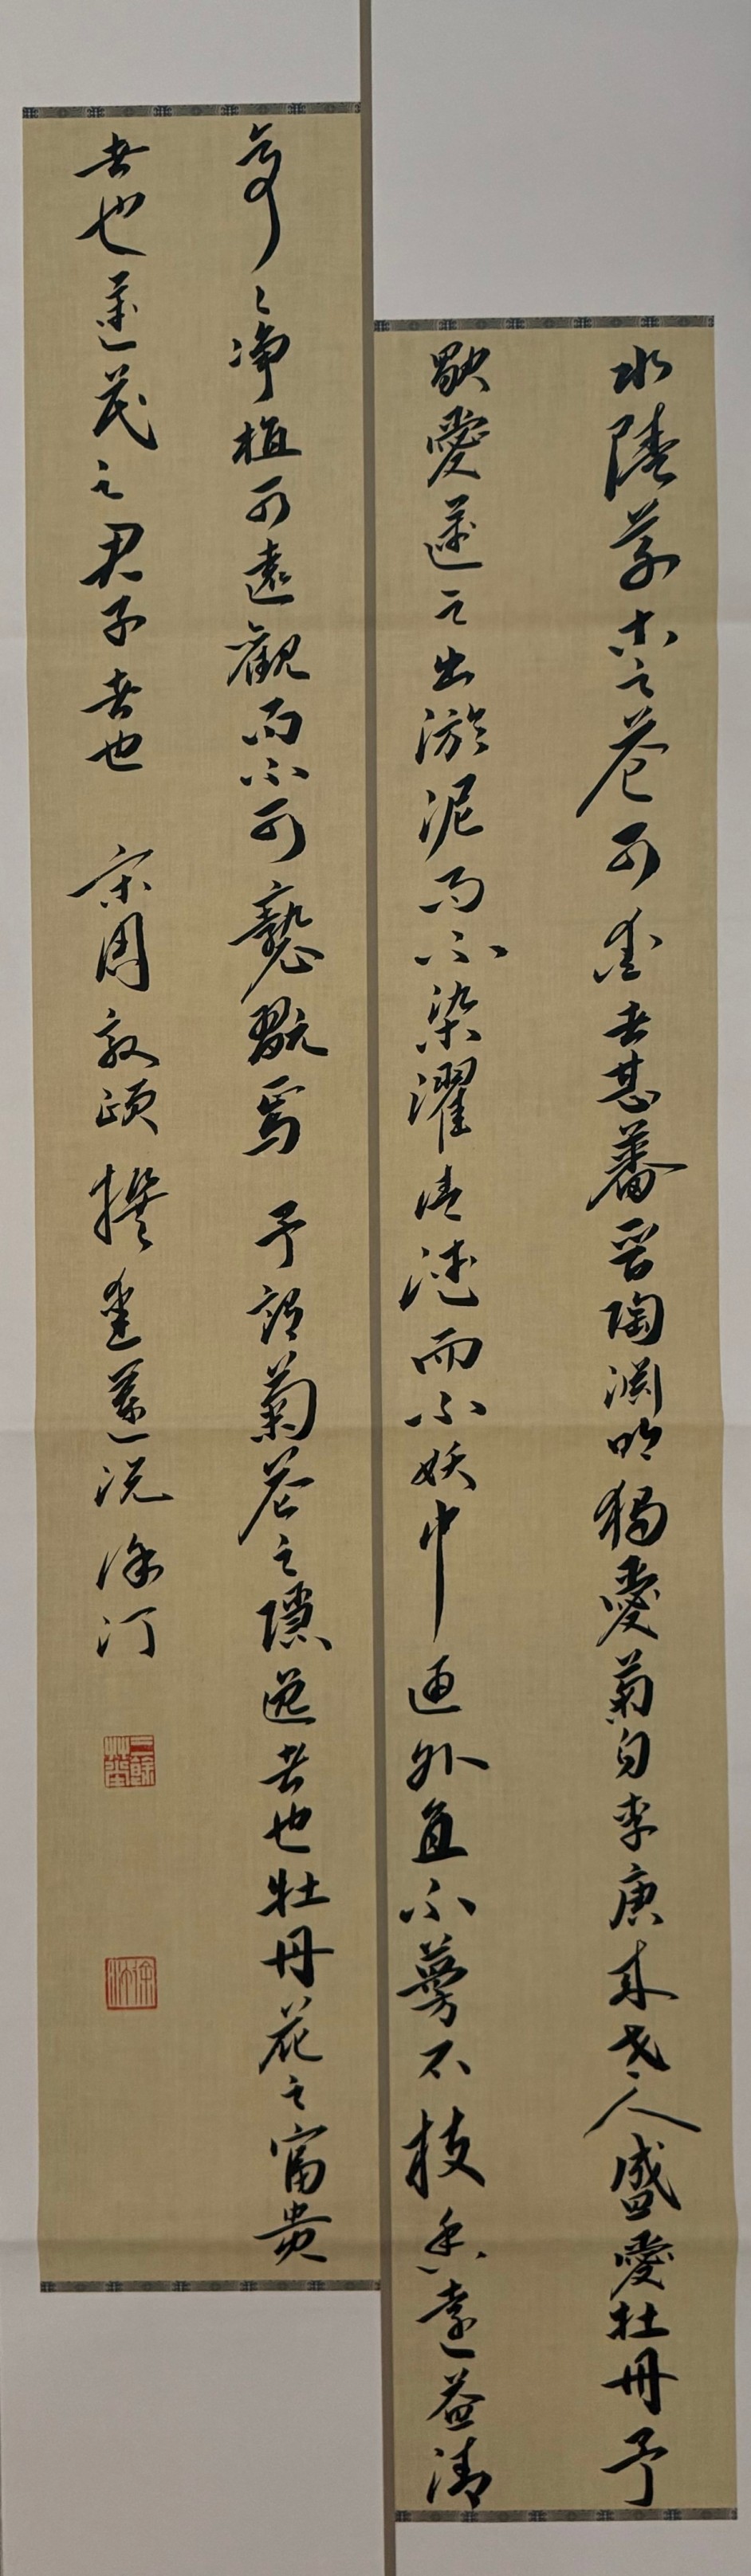 水陸草木之花可愛者甚蕃晉陶淵明獨愛菊自李唐来世人盛愛牡丹予
獨愛蓮之出淤泥而不染濯清漣而不妖中通外直不蔓不枝香遠益清
亭〻淨植可遠觀而不可褻翫焉予謂菊花之隱逸者也牡丹花之富貴
者也蓮花之君子者也 宋周敦頤撰愛蓮説徐汀
三餘草堂